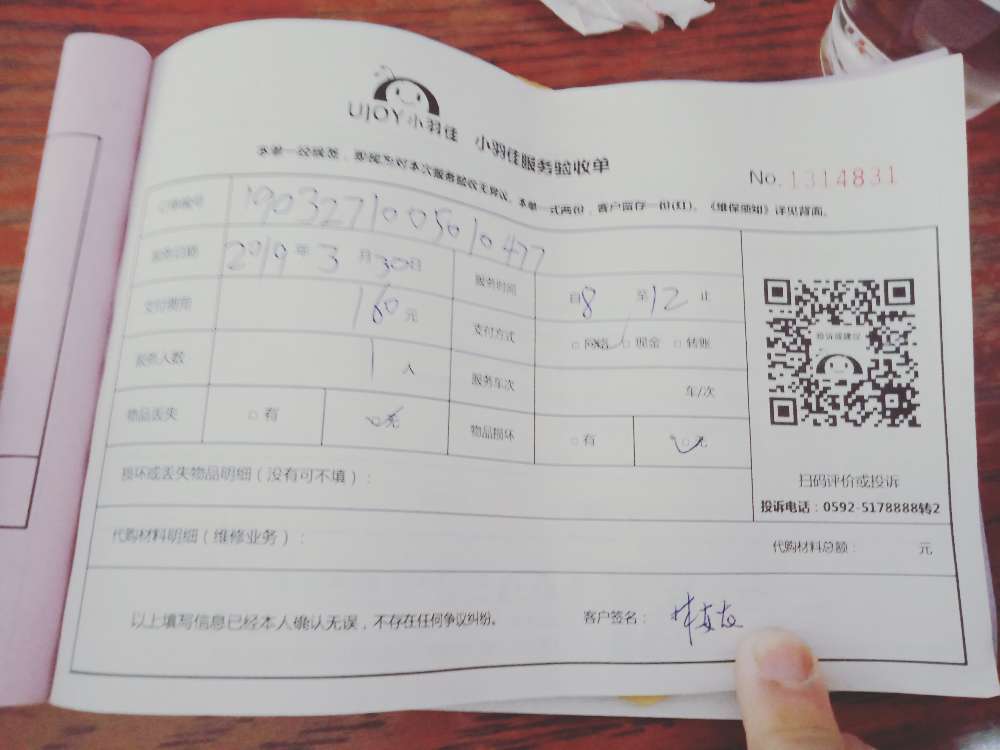 UJOY小羽佳 小羽佳服务验收单
No.1314831
本单一式两份,客户留存一份(红)。《维保须知》详见背面。
订单编号 1903271005010477
服务日期 2019年3月30日 服务时间 自8至12止
支付费用 160元 支付方式 □网络 □现金 □转账
服务人数 1人 服务车次 车/次
物品丢失 □有 □无 物品损坏 □有 □无
投诉或建议
扫码评价或投诉
投诉电话:0592-5178888转2
损坏或丢失物品明细(没有可不填):
代购材料明细(维修业务): 代购材料总额: 元
以上填写信息已经本人确认无误,不存在任何争议纠纷。 客户签名: